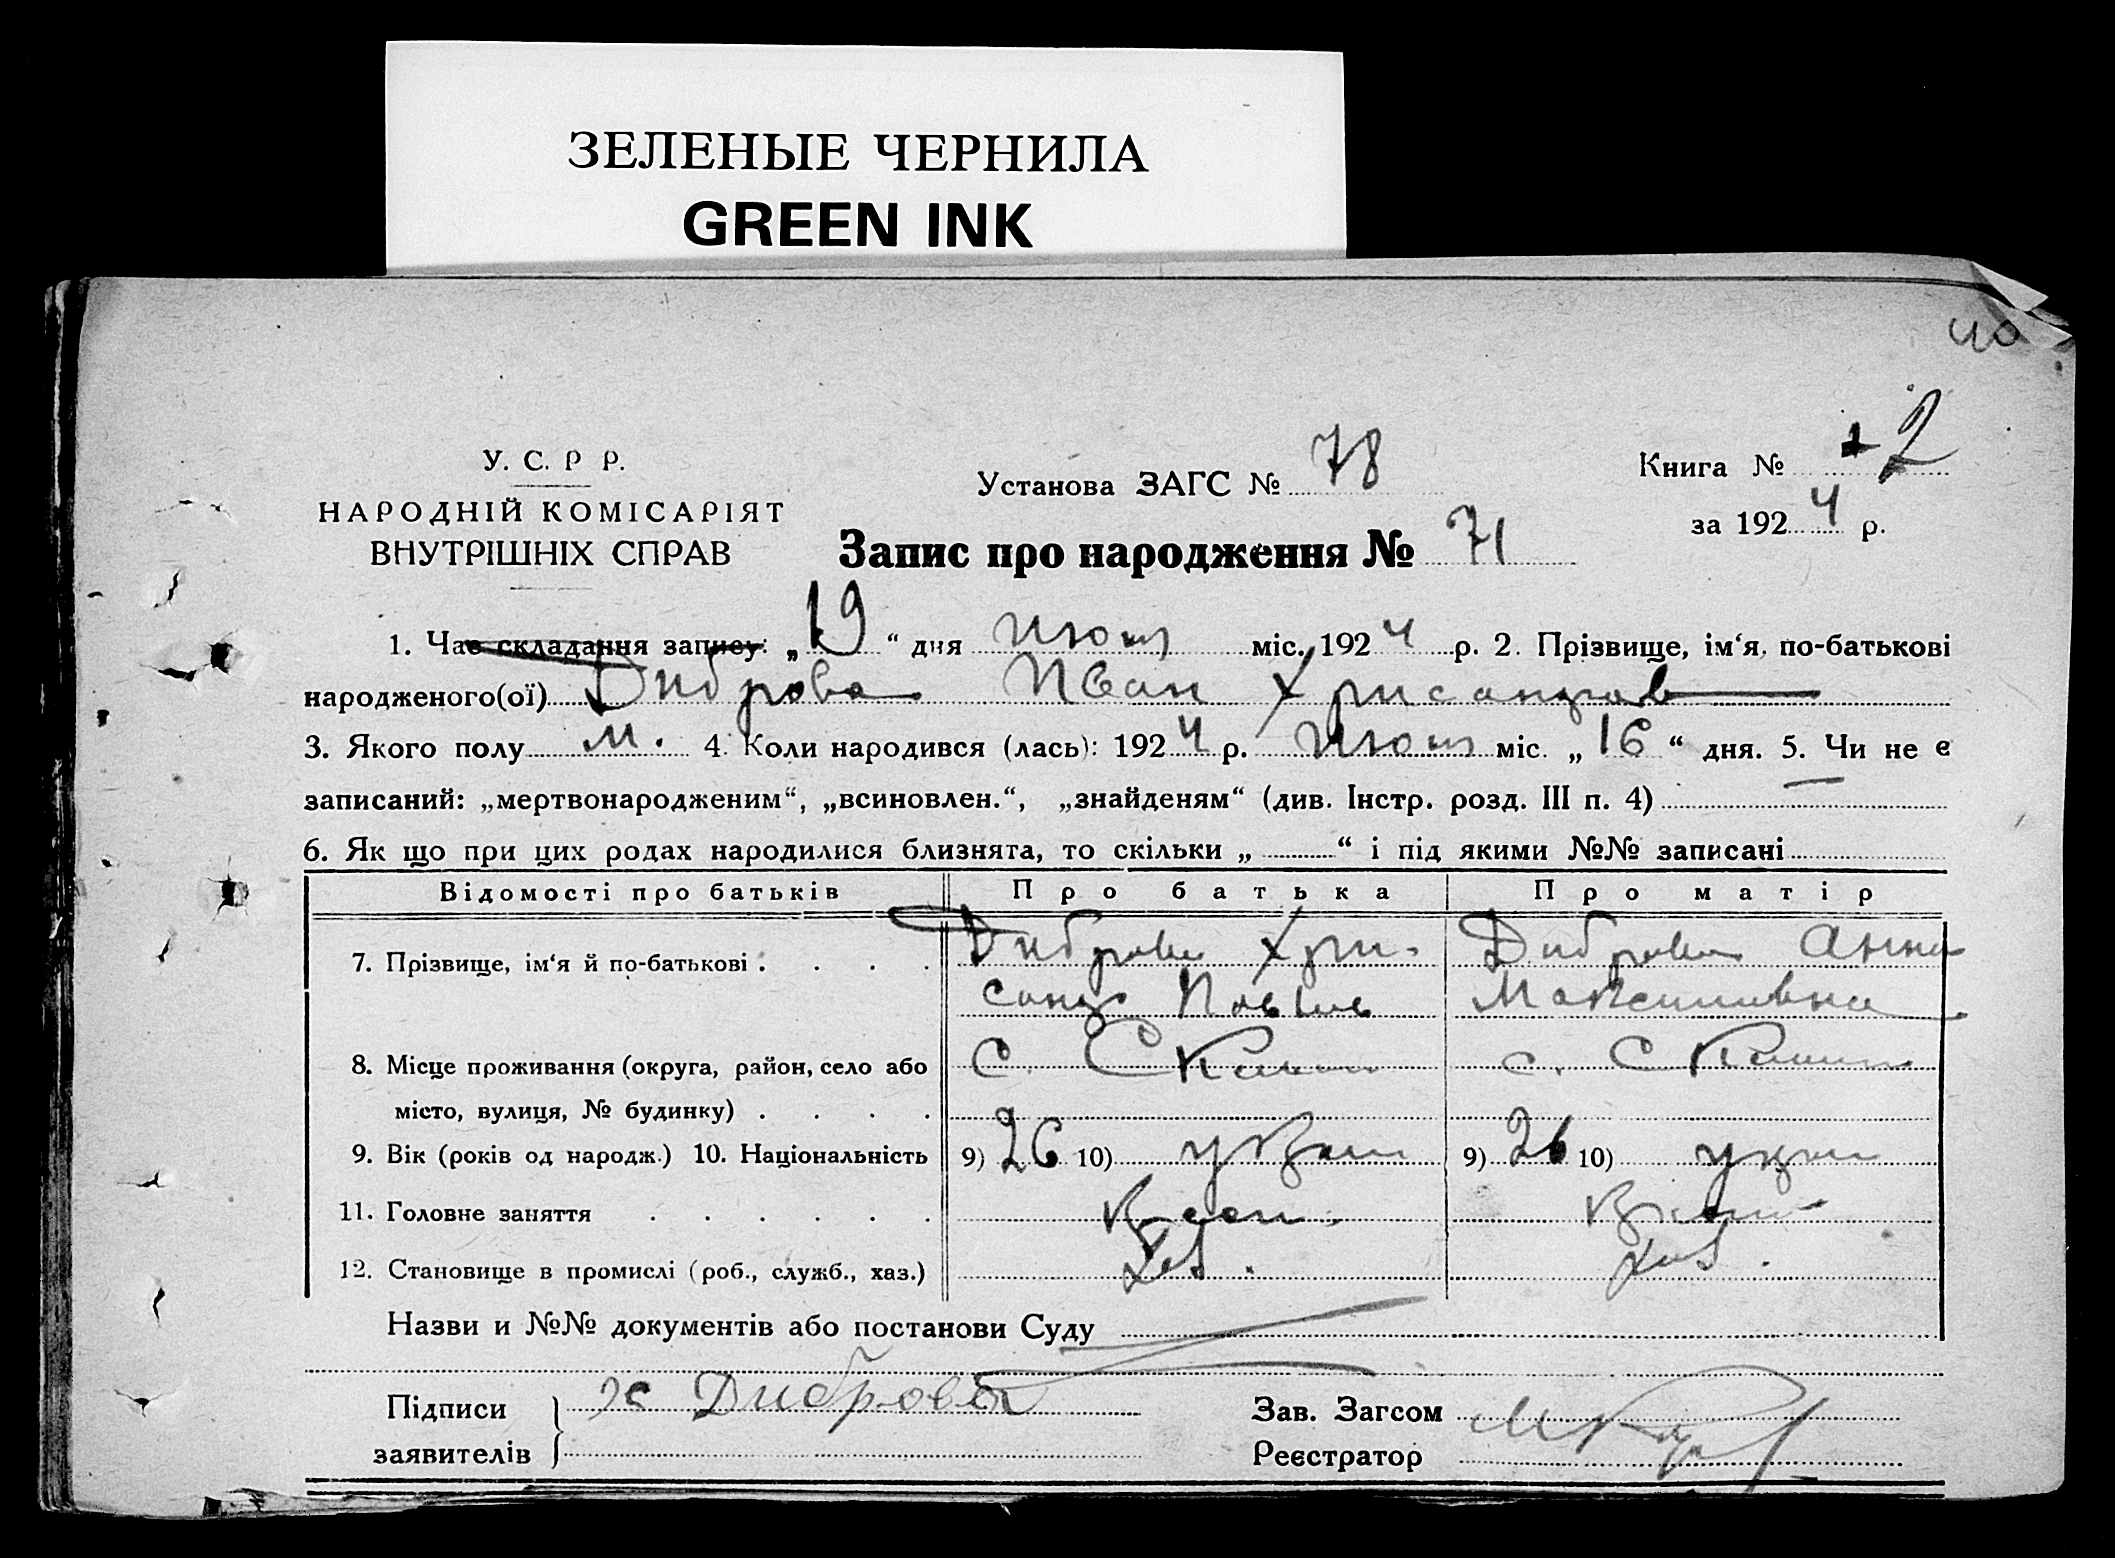 ЗЕЛЕНЫЕ ЧЕРНИЛА
GREEN INK
40
У. С. Р Р.
НАРОДНІЙ КОМІСАРІЯТ
ВНУТРІШНІХ СПРАВ
Установа ЗАГС № 78
Запис про народження № 71
Книга № 2
за 1924 р.
1. Час складання запису: „19“ дня Июля міс. 1924 р. 2. Прізвище, ім‘я, по-батькові
народженого(ої) Диброва Иван Хрисанфов
3. Якого полу м. 4. Коли народився (лась): 1924 р. Июля міс. „16“ дня. 5. Чи не є
записаний: „мертвонародженим“, „всиновлен.“, „знайденям“ (див. Інстр. розд. III п. 4) —
6. Як що при цих родах народилися близнята, то скільки „ “ і під якими №№ записані
Відомості про батьків Про батька Про матір
7. Прізвище, ім‘я й по-батькові . . . . Диброва Хри- Диброва Анна
санф Павлов Максимовна
8. Місце проживання (округа, район, село або с. с.
місто, вулиця, № будинку) . . . .
9. Вік (років од народж.) 10. Національність 9) 26 10) украин 9) 26 10) украин
11. Головне заняття . . . . . .
12. Становище в промислі (роб., служб., хаз.)
Назви и №№ документів або постанови Суду
Підписи Х Диброва Зав. Загсом
заявителів Реєстратор